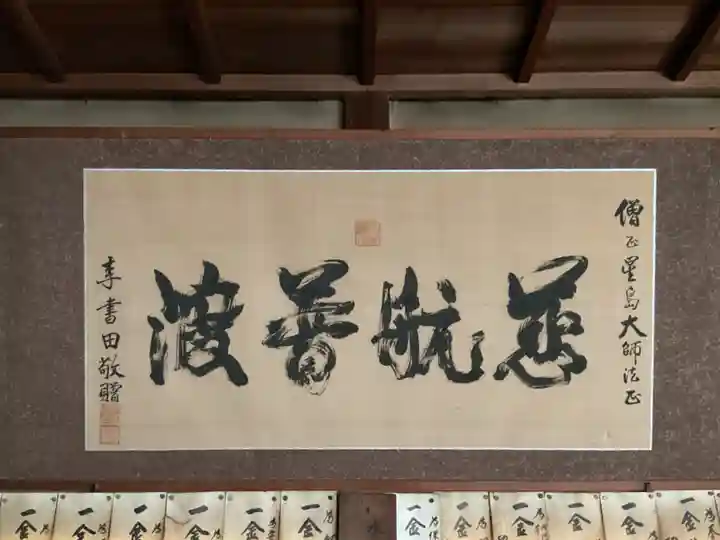 慈航普渡
僧正星島大師法正
李書田敬贈
一金
一金
一金
一金
一金
一金
一金
一金
一金
一金
一金
一金